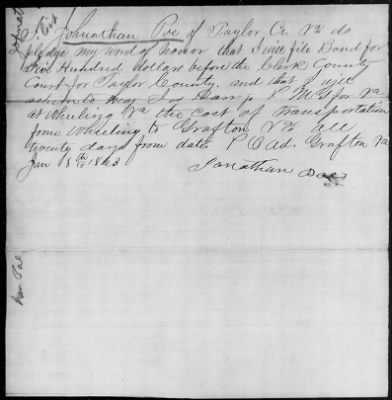 I Johnathan Poe of Taylor Co. Va do
pledge my word of honor that I will file Bond for
Five Hundred dollars before the Clerk County
Court for Taylor County, and that I will
return to Maj Jos Darr Jr P. M. G for Va
at Wheeling Va the cost of transportation
from Wheeling to Grafton Va all
twenty days from date P O ad. Grafton Va
Jan 8th 1863
Jonathan Poe